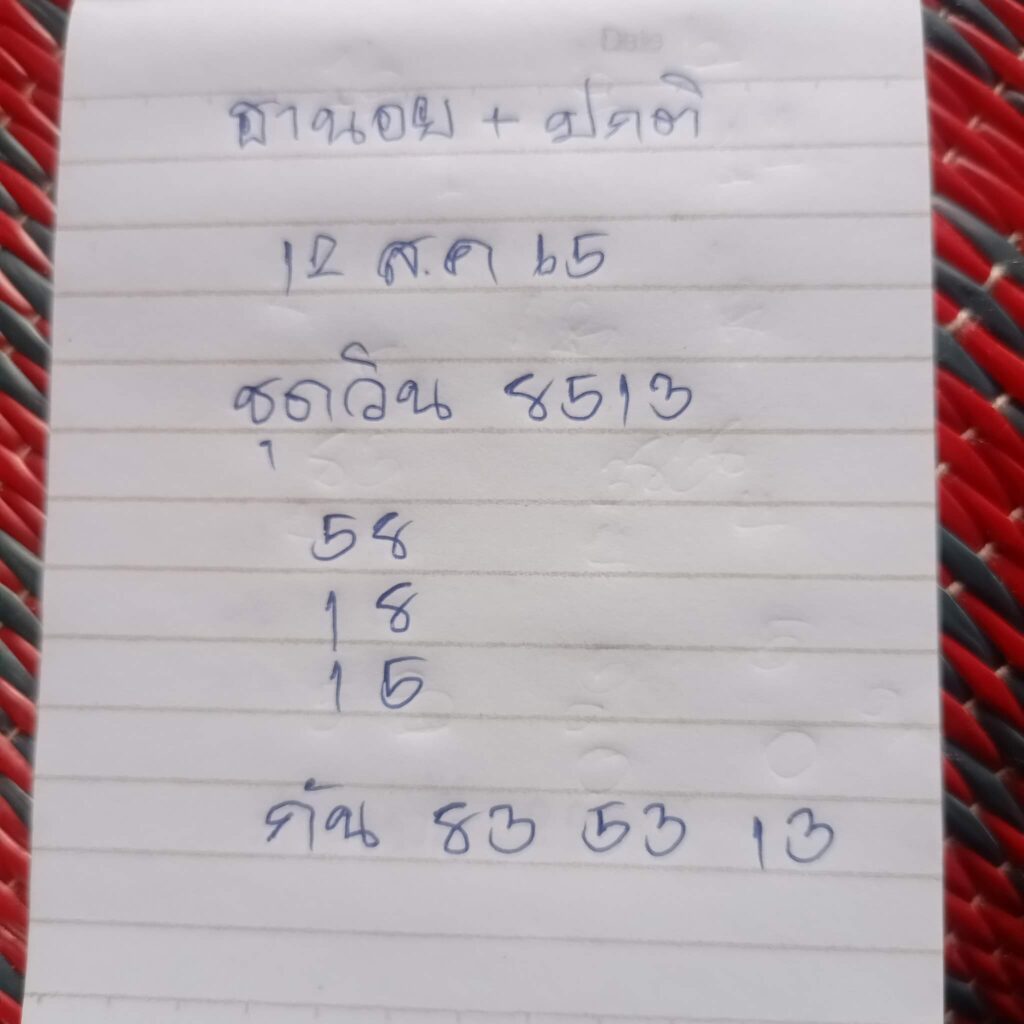 Date
ฮานอย + ปกติ
12 ส.ค 65
ชุดวิน 8513
58
18
15
กัน 83 53 13